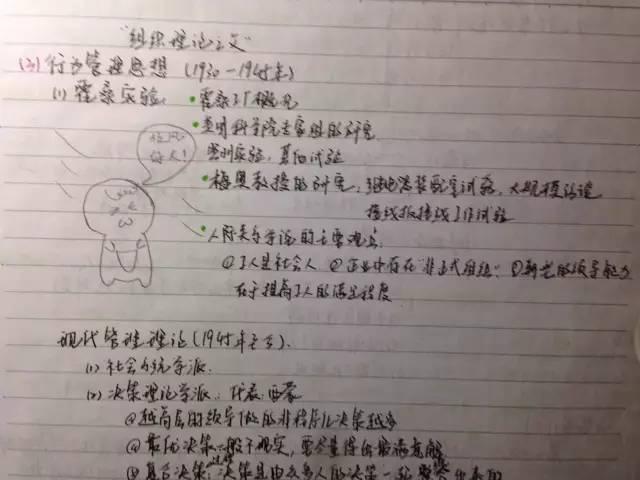 "组织理论之父"
(3)行为管理思想 (1930-1945年)
(1) 霍桑实验 •霍桑工厂概况
•美国科学院专家组的研究
照明实验,其他试验
•梅奥教授的研究:继电器装配室试验,大规模访谈
接线板接线工作试验
•人际关系学说的主要观点:
①工人是社会人 ②企业中存在"非正式组织" ③新型的领导能力
在于提高工人的满足程度
好人!
现代管理理论(1945年至今)
(1) 社会系统学派.
(2) 决策理论学派:代表:西蒙
越高层的领导做的非程序化决策越多
最优决策一般不现实,要尽量得出最满意解
决策是由众多人的决策